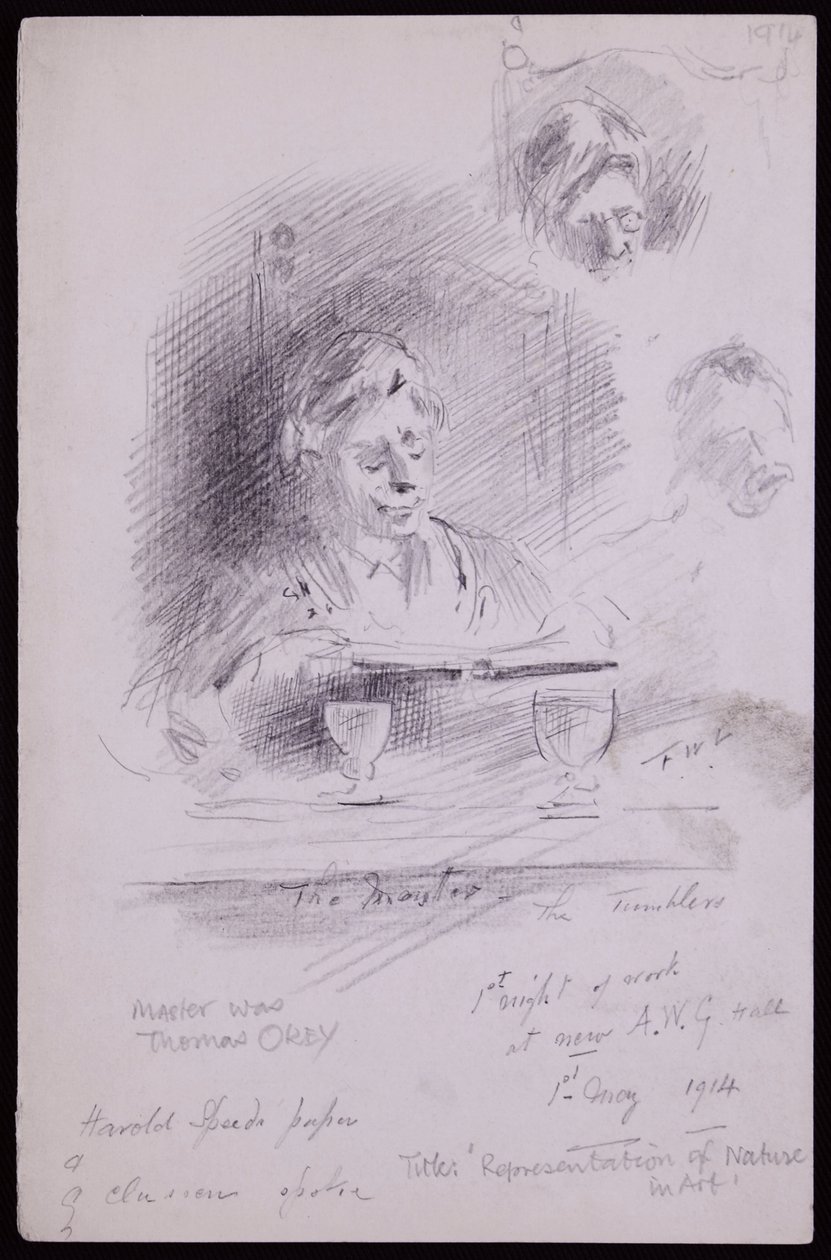 1914
F. W. L
The Master -
The Tumblers
1st night of work
at new A.W.G. Hall
1st May 1914
Master was
Thomas OKEY
Harold Speeds paper
&
G Clausen spoke
Title: 'Representation of Nature
in Art'